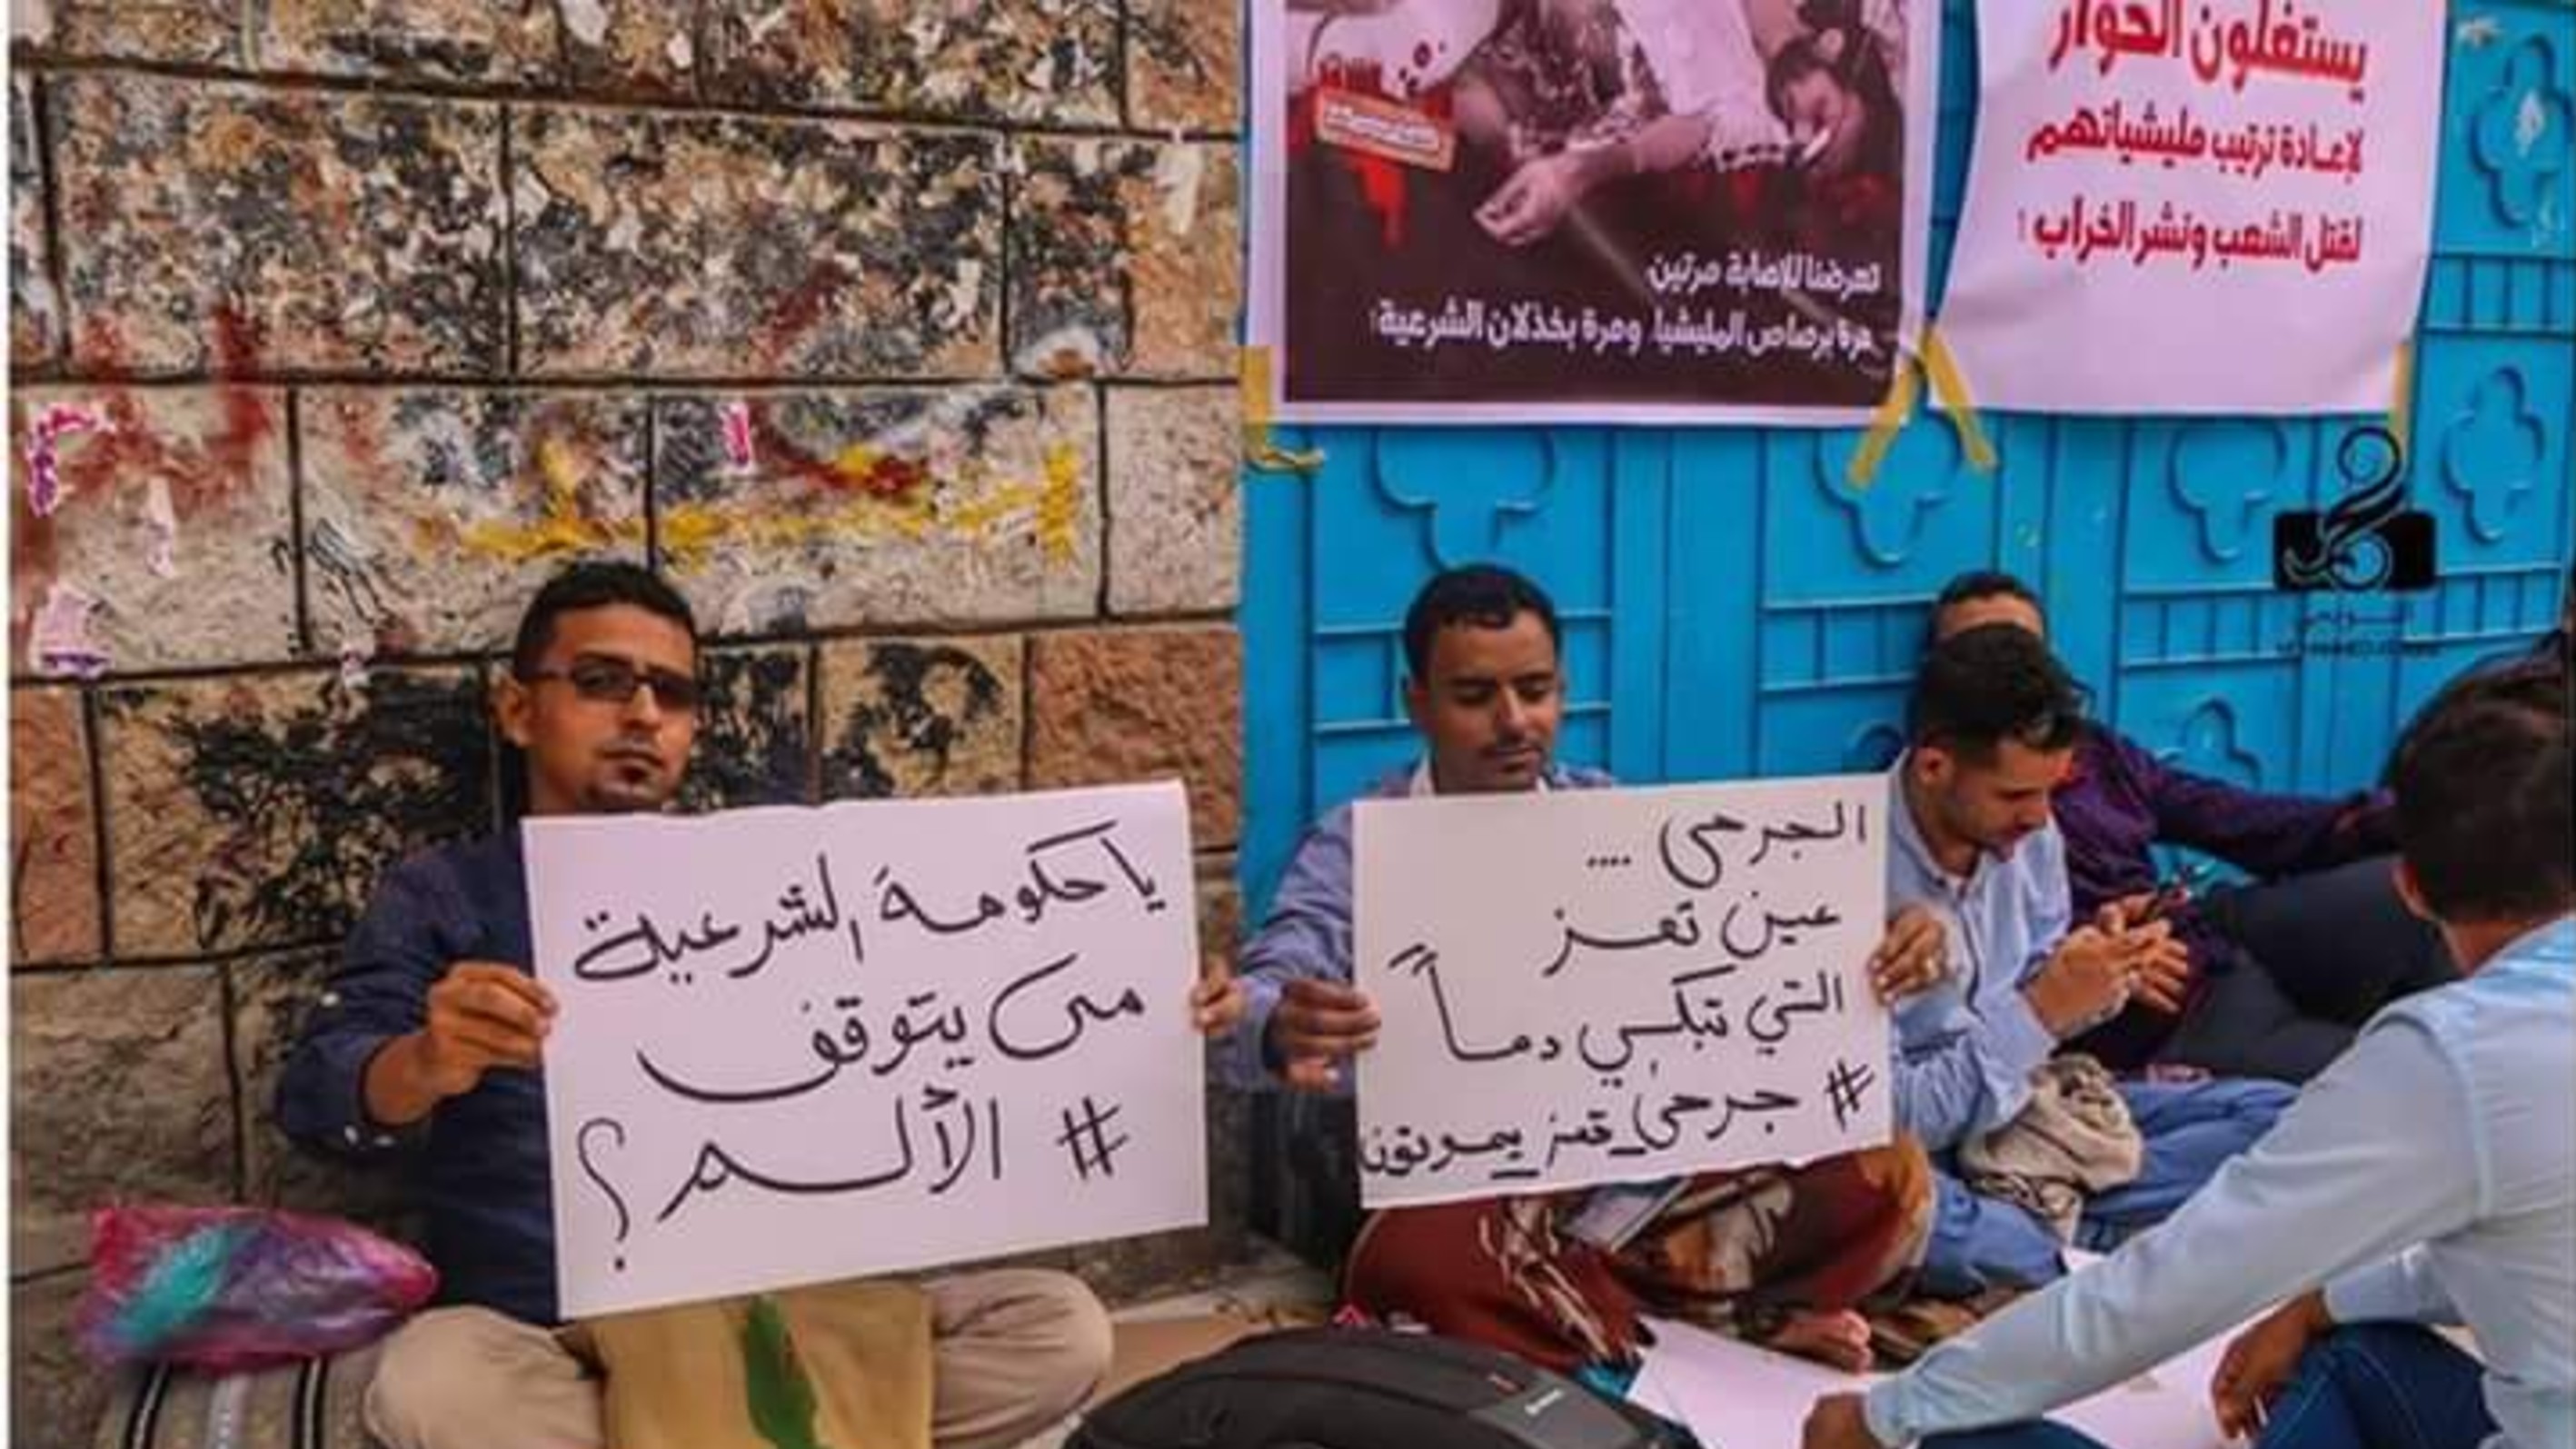 يستغلون الحوار
لإعادة ترتيب مليشياتهم
لقتل الشعب ونشر الخراب !
تعرضنا للإصابة مرتين
مرة برصاص المليشيا، ومرة بخذلان الشرعية!
الجرحى ....
عين تعز
التي تبكي دماً
# جرحى_تعز_يموتون
يا حكومة الشرعية
متى يتوقف
# الألم؟